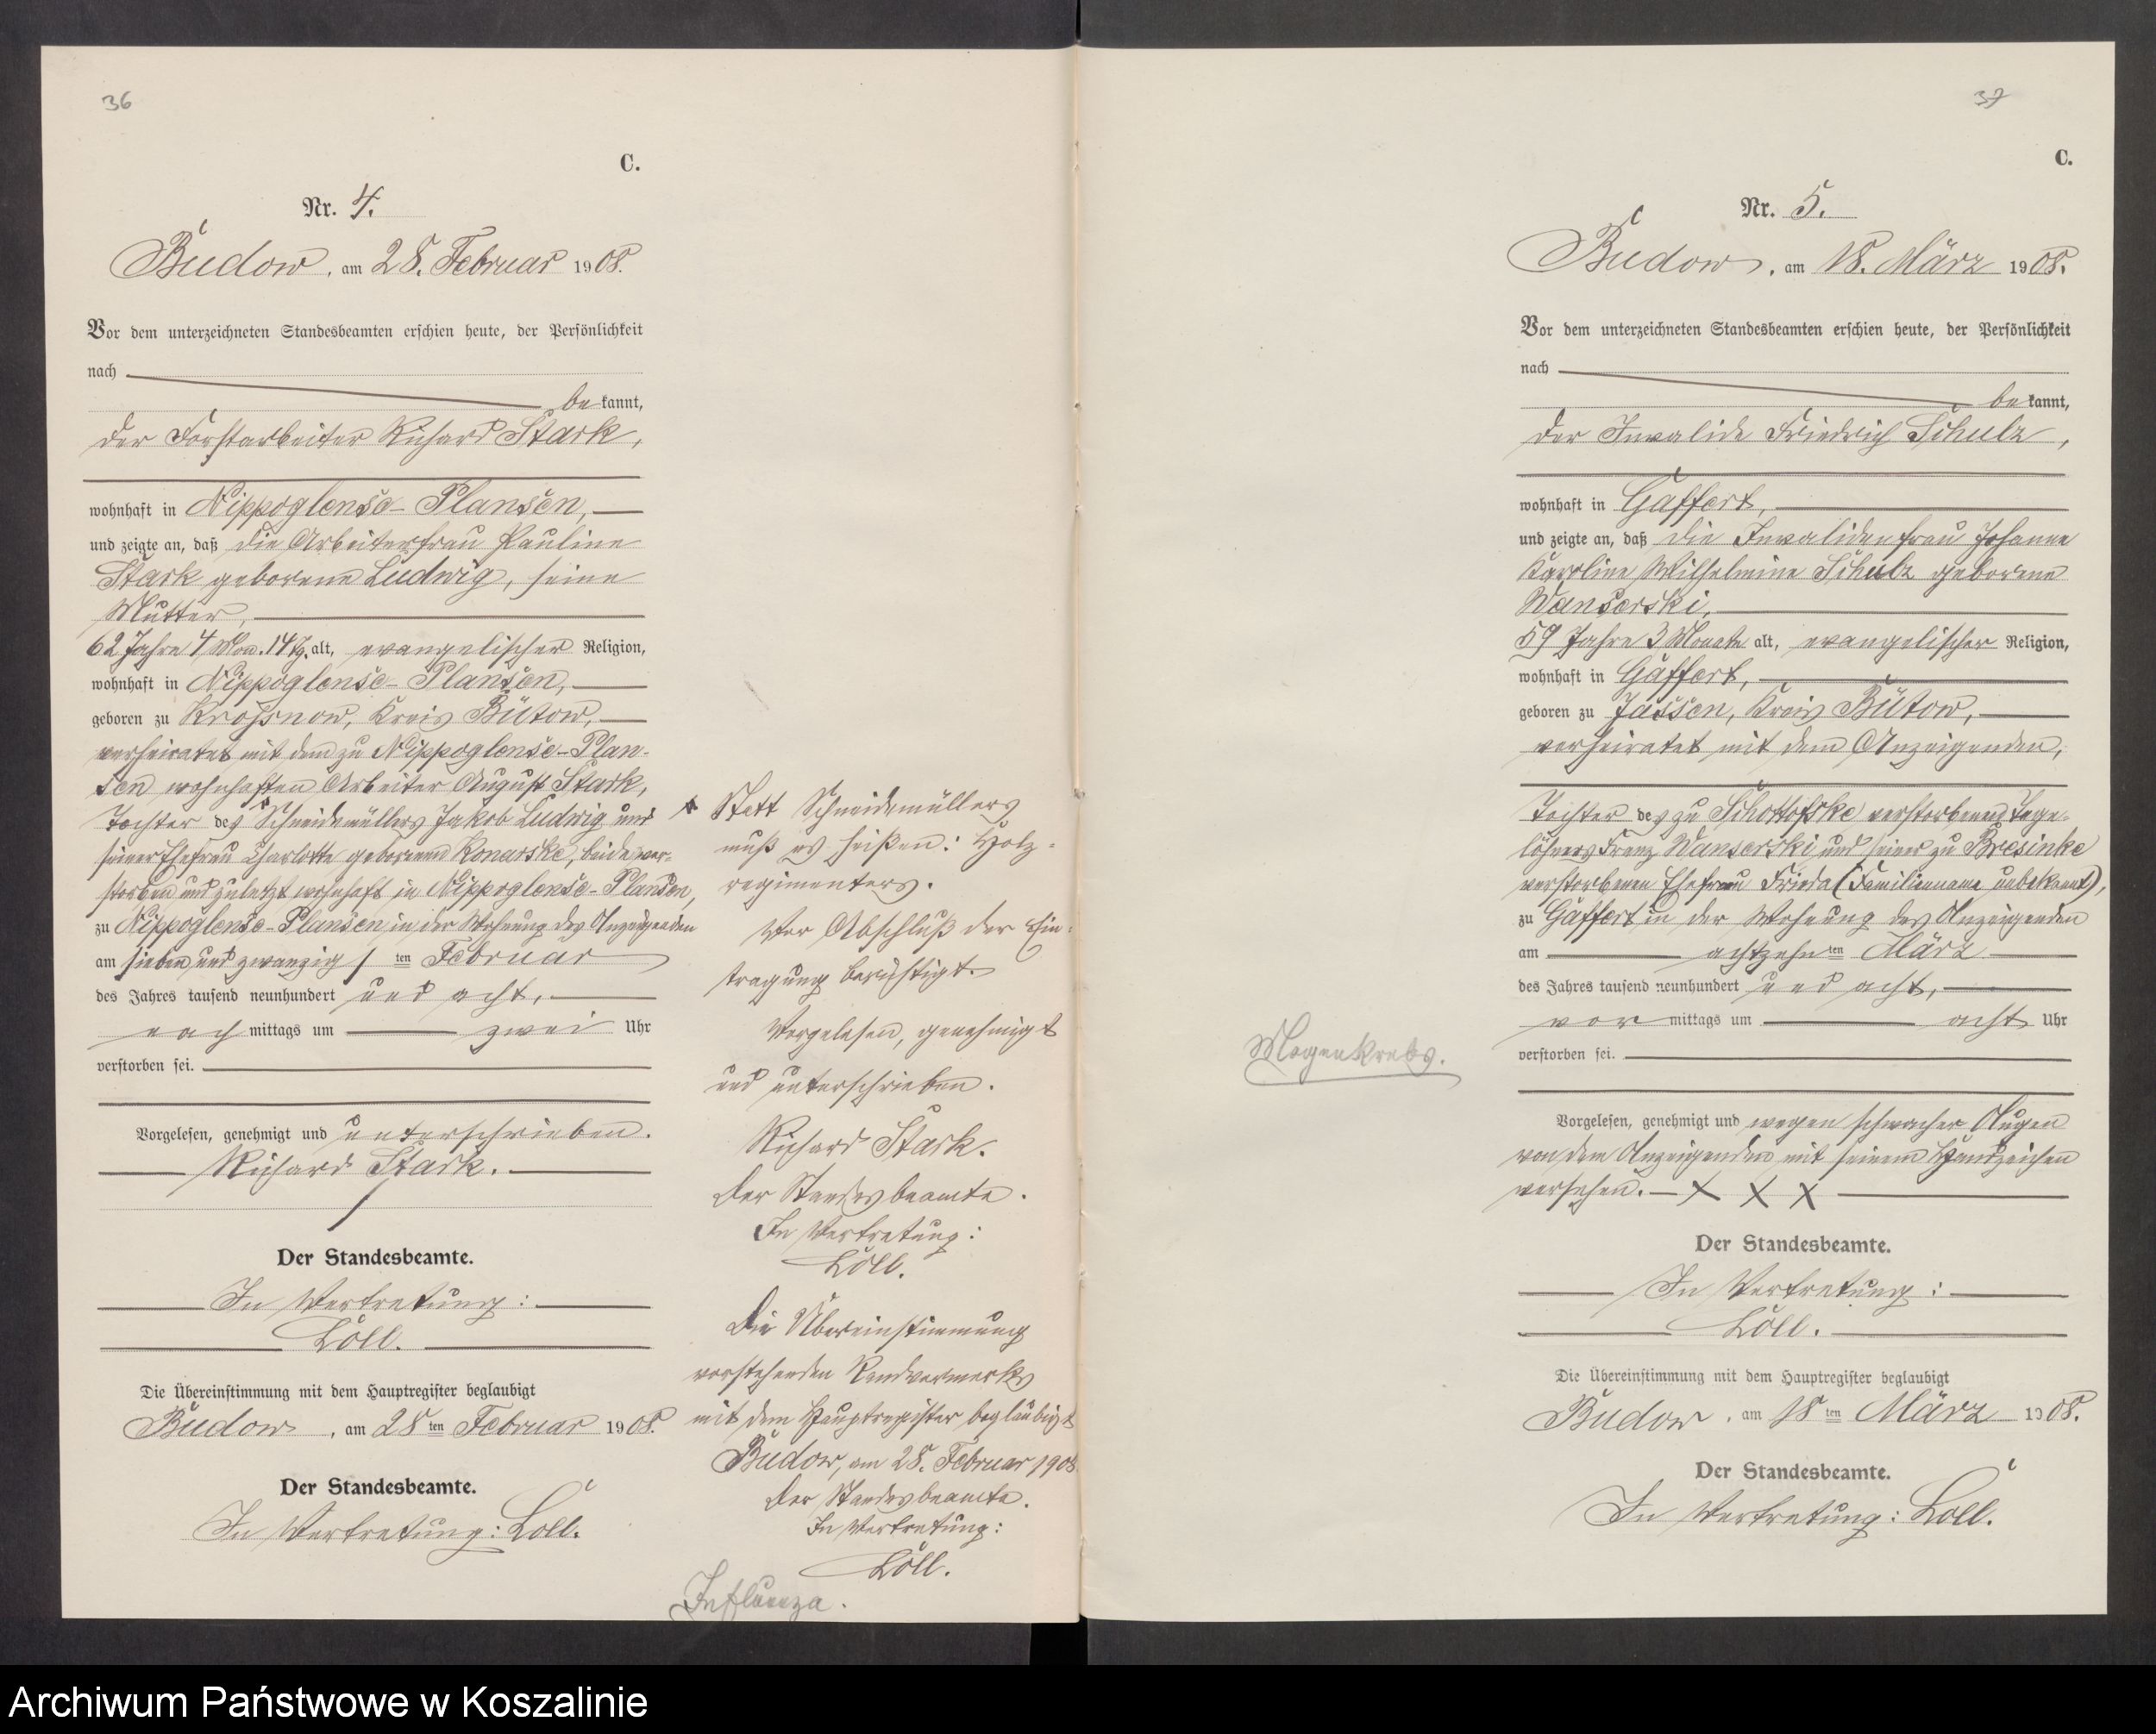 36
C.
Nr. 4.
Budow, am 28. Februar 1908.
Vor dem unterzeichneten Standesbeamten erschien heute, der Persönlichkeit
nach
be kannt,
der Forstarbeiter Richard Stark,
wohnhaft in Nippoglense-Plansen,
und zeigte an, daß die Arbeiterfrau Pauline
Stark geborene Ludwig, seine
Mutter,
62 Jahre 4 Mon. 14 Tg. alt, evangelischer Religion,
wohnhaft in Nippoglense-Plansen,
geboren zu Krossnow, Kreis Bütow,
verheiratet mit dem zu Nippoglense-Plan-
sen wohnhaften Arbeiter August Stark,
Tochter des Schneidemüllers Jakob Ludwig und
seiner Ehefrau Charlotte geborenen Konarske, beide ver-
storben und zuletzt wohnhaft in Nippoglense-Plansen,
zu Nippoglense-Plansen in der Wohnung des Anzeigenden
am sieben und zwanzig ten Februar
des Jahres tausend neunhundert und acht,
nach mittags um zwei Uhr
verstorben sei.
Vorgelesen, genehmigt und unterschrieben.
Richard Stark.
Der Standesbeamte.
In Vertretung:
Loll.
Die Übereinstimmung mit dem Hauptregister beglaubigt
Budow, am 28 ten Februar 1908.
Der Standesbeamte.
In Vertretung: Loll.
Statt Schneidemüllers
muß es heißen: Holz-
regimenters.
Vor Abschluß der Ein-
tragung berichtigt.
Vorgelesen, genehmigt
und unterschrieben.
Richard Stark.
Der Standesbeamte.
In Vertretung:
Loll.
Die Übereinstimmung
vorstehenden Randvermerks
mit dem Hauptregister beglaubigt
Budow, am 28. Februar 1908.
Der Standesbeamte.
In Vertretung:
Loll.
Influenza.
37
C.
Nr. 5.
Budow, am 18. März 1908.
Vor dem unterzeichneten Standesbeamten erschien heute, der Persönlichkeit
nach
be kannt,
der Invalide Friedrich Schulz,
wohnhaft in Gaffert,
und zeigte an, daß die Invalidenfrau Johanne
Karoline Wilhelmine Schulz geborene
Wanserski,
59 Jahre 3 Monate alt, evangelischer Religion,
wohnhaft in Gaffert,
geboren zu Jassen, Kreis Bütow,
verheiratet mit dem Anzeigenden,
Tochter des zu Schottofske verstorbenen Tage-
löhners Franz Wanserski und seiner zu Bresinke
verstorbenen Ehefrau Frieda (Familienname unbekannt),
zu Gaffert in der Wohnung des Anzeigenden
am achtzehn ten März
des Jahres tausend neunhundert und acht,
vor mittags um acht Uhr
verstorben sei.
Magenkrebs.
Vorgelesen, genehmigt und wegen schwacher Augen
von dem Anzeigenden mit seinem Handzeichen
versehen. X X X
Der Standesbeamte.
In Vertretung:
Loll.
Die Übereinstimmung mit dem Hauptregister beglaubigt
Budow, am 18 ten März 1908.
Der Standesbeamte.
In Vertretung: Loll.
Archiwum Państwowe w Koszalinie